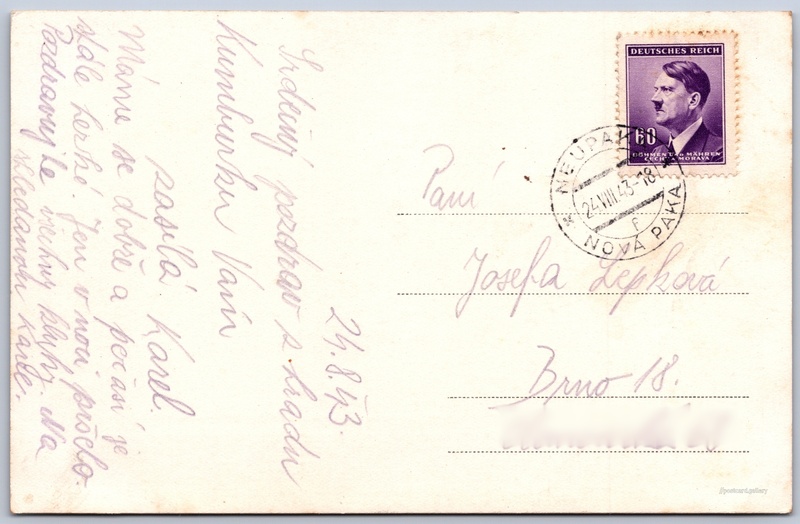 24.8.43.
Srdečný pozdrav s hradu
Kumburku Vám
zasílá Karel.
Máme se dobře a počasí je
stále hezké. Jen v noci pršelo.
Pozdravujte všechny kluky. Na
shledanou Karel.
DEUTSCHES REICH
60
BÖHMEN U. MÄHREN
ČECHY A MORAVA
NEUPAKA
24.VIII.43-18
F
NOVÁ PAKA
Paní
Josefa Lepková
Brno 18.
postcard.gallery